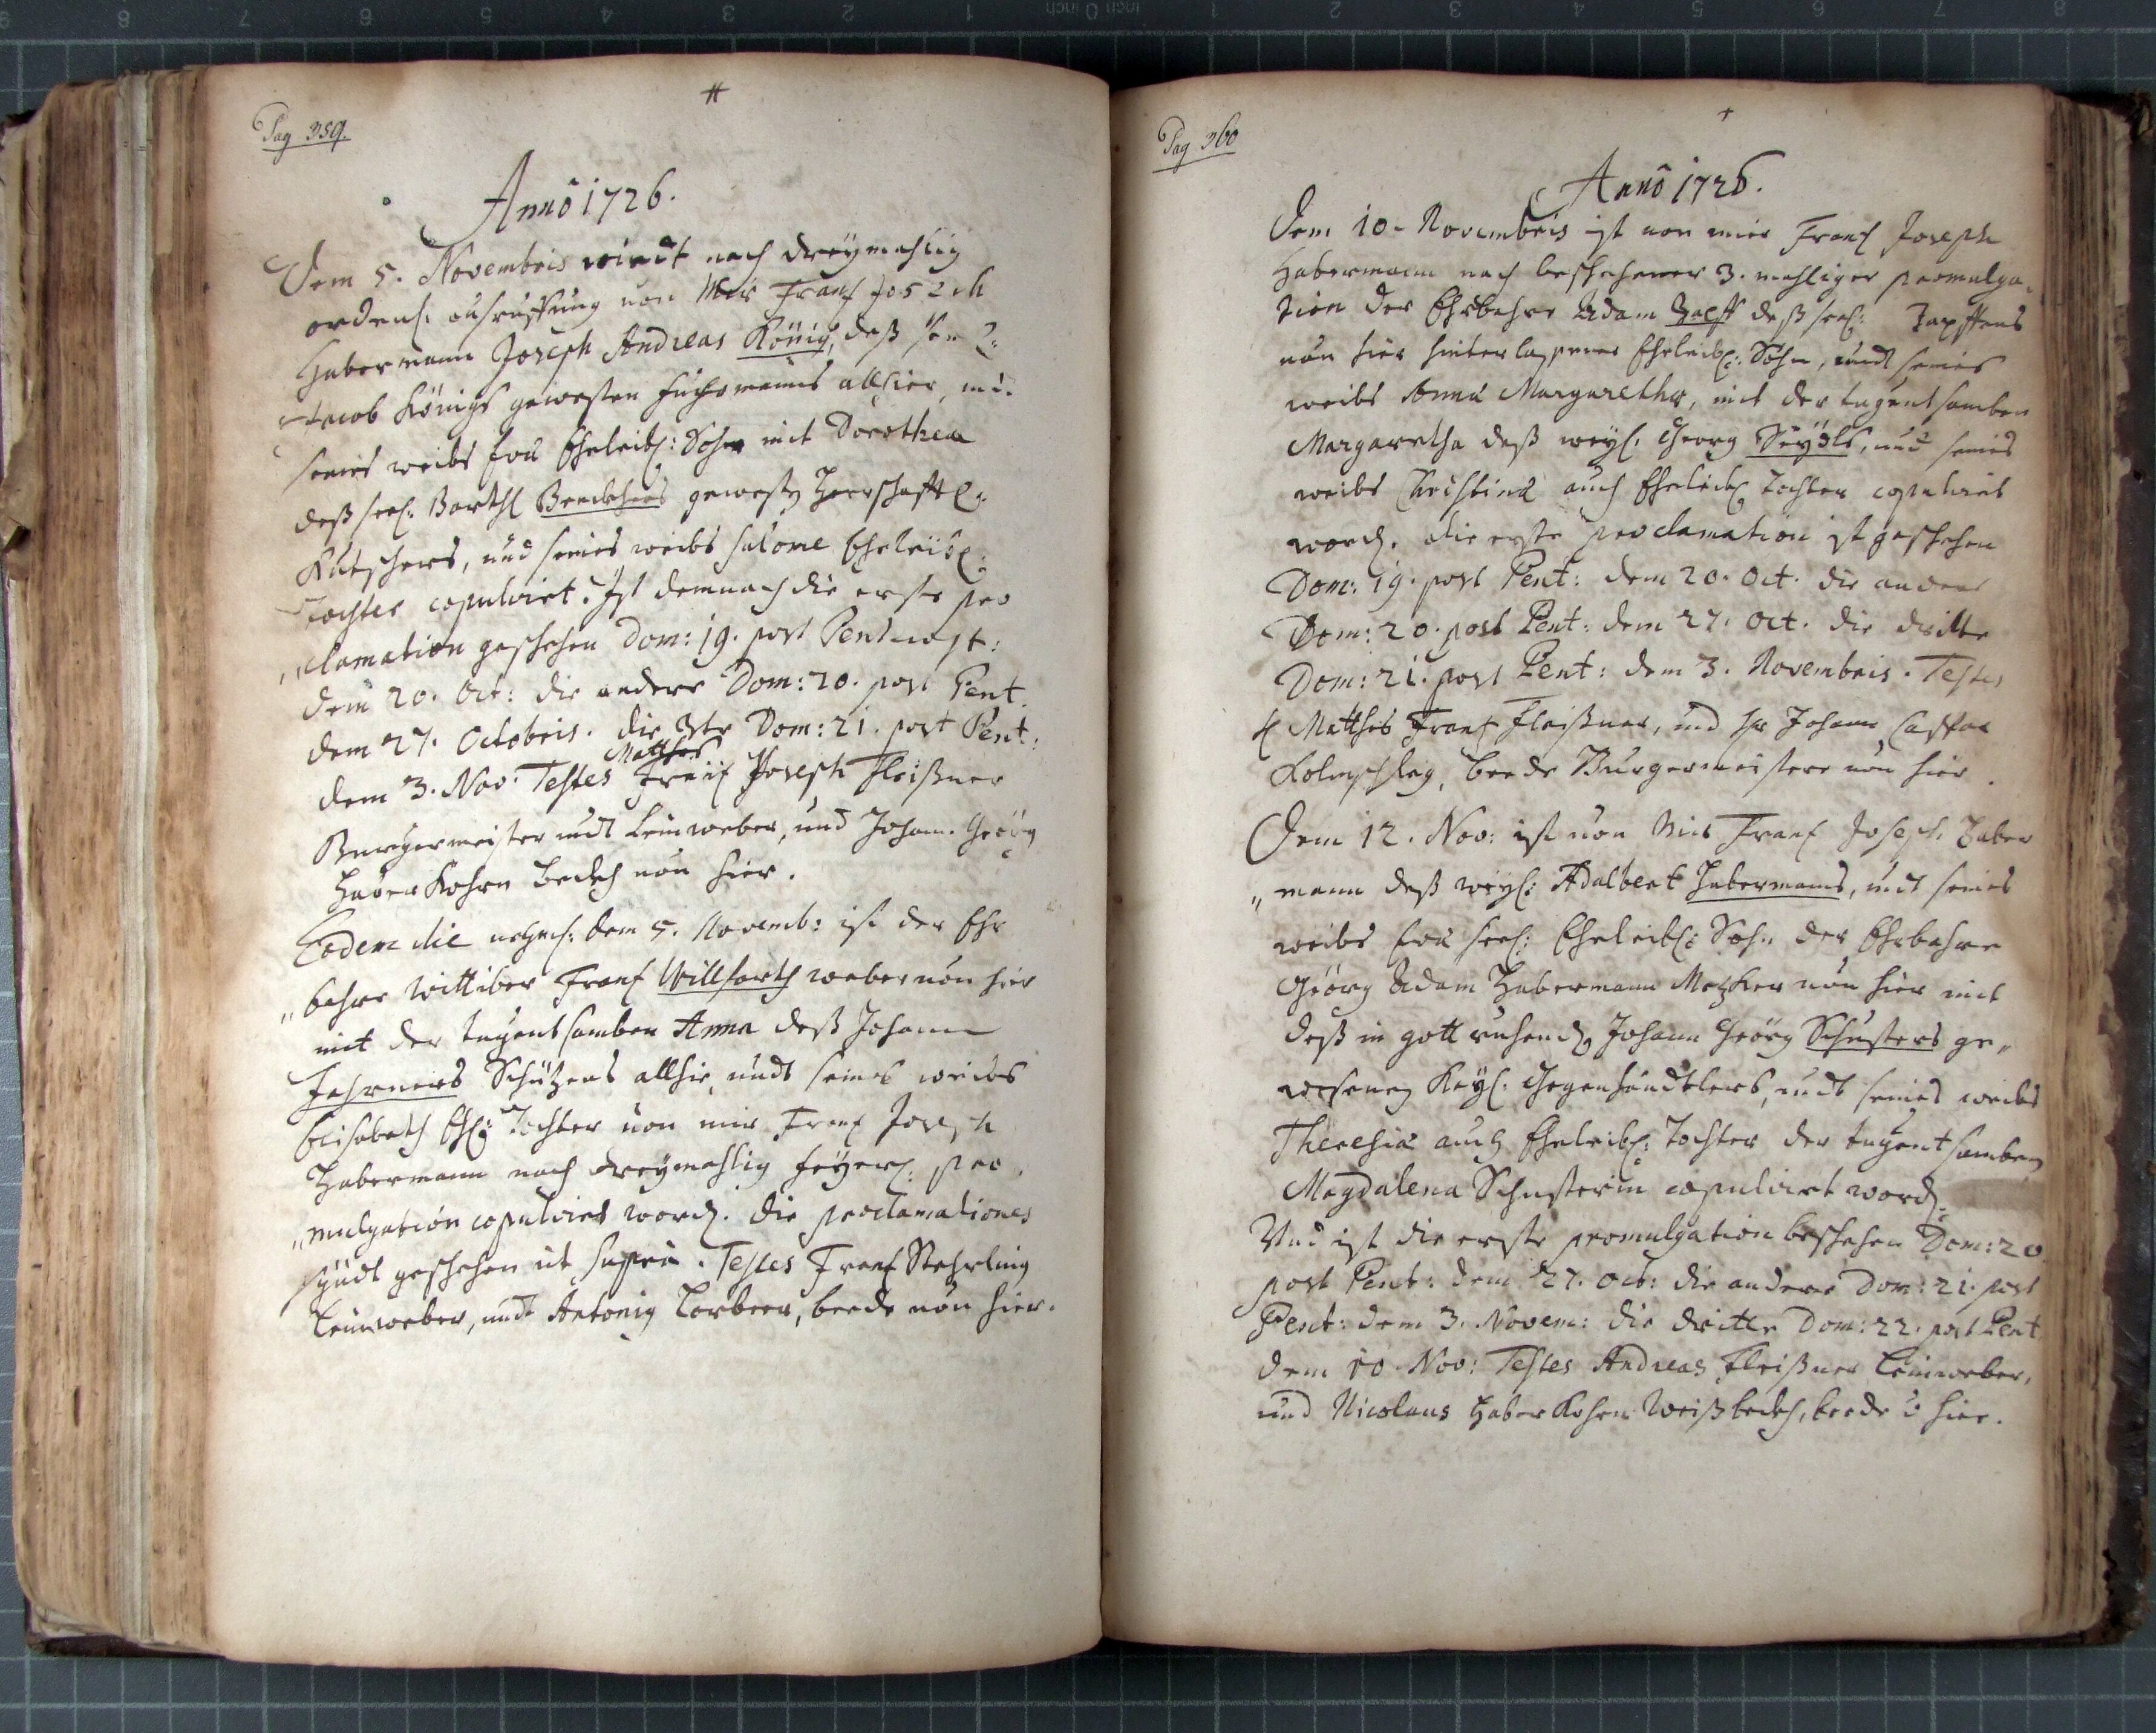 Pag 359.
Anno 1726.
Dem 5. Novembris wirdt nach dreymahlig
ordentl: außruffung von Mir Frantz Joseph
Habermann Joseph Andreas König, deß seel:
Jacob Königs gewesten fuhrmanns allhier, und
seines weibs Eva Eheleibl: Sohn mit Dorothea
deß seel: Barthl gewesten Herrschaftl:
Kutschers, und seines weibs Salome Eheleibl:
Tochter copulirt. Ist demnach die erste pro
clamation geschehen Dom: 19. post Pentecost:
dem 20. Oct: die andere Dom: 20. post Pent.
dem 27. Octobris. die 3te Dom: 21. post Pent:
dem 3. Nov. Testes Mathes Frantz Joseph Fleißner
Burgermeister undt Leinweber, und Johann Georg
Haberkohrn Beckh von hier.
Eodem die nehml: dem 5. Novemb: ist der Ehr
„bahre Wittiber Frantz Willfarth weber von hier
mit der tugentsamben Anna deß Johann
Fahrners Schützens allhie, undt seines weibs
Elisabeth Ehl: Tochter von mir Frantz Joseph
Habermann nach dreymahlig feyerl: pro
„mulgation copulirt word. die proclamationes
syndt geschehen ut supra. Testes Frantz Stehrling
Leinweber, undt Antoni Lorbeer, beede von hier.
Pag 360
Anno 1726.
Dem 10. Novembris ist von mir Frantz Joseph
Habermann nach beschehener 3. mahliger promulga-
tion der Ehrbahre Adam Zapff deß seel: Zapffens
von hier hinterlassener Eheleibl: Sohn, undt seines
weibs Anna Margaretha, mit der tugentsamben
Margaretha deß weyl: Georg Seydls, und seines
weibs Christina auch Eheleibl Tochter copulirt
word. die erste proclamation ist geschehen
Dom: 19. post Pent: dem 20. Oct. die andere
Dom: 20. post Pent: dem 27. Oct. die dritte
Dom: 21. post Pent: dem 3. Novembris. Testes
H Matthes Frantz Fleißner, und Hr Johann Caspar
Kolmschlag, beede Burgermeistere von hier.
Dem 12. Nov: ist von Mir Frantz Joseph Haber
„mann deß weyl: Adalbert Habermanns, undt seines
weibs Eva seel: Eheleibl: Sohn der Ehrbahre
Georg Adam Habermann Metzker von hier mit
deß in gott ruhend Johann Georg Schusters ge„
wesenen Keyl: Gegenhändtlers, undt seines weibs
Theresia auch Eheleibl: Tochter der tugentsamben
Magdalena Schusterin copulirt word.
Und ist die erste promulgation beschehen Dom: 20
post Pent: dem 27. Oct: die andere Dom: 21. post
Pent: dem 3. Novem: die dritte Dom: 22. post Pent
dem 10 Nov: Testes Andreas Fleißner Leinweber,
und Nicolaus Haberkohrn Weißbeckh, beede v hier.